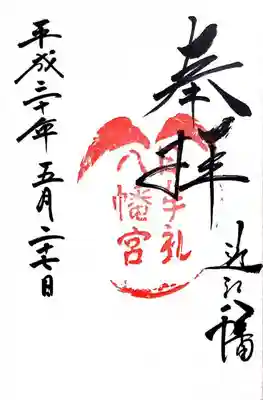 奉拝
近江八幡
日牟礼
八幡宮
平成三十年五月二十七日